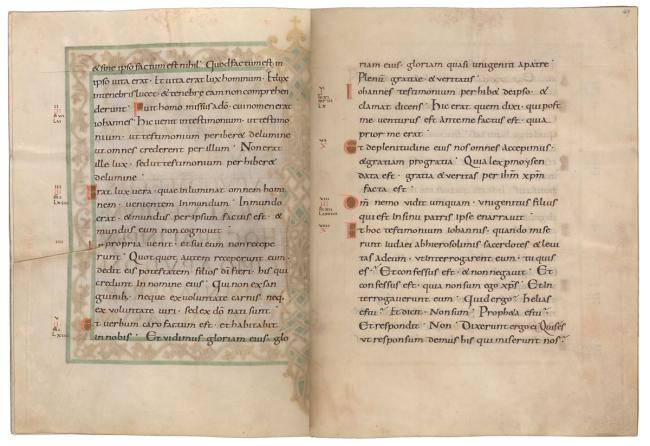 & sine ipso factum est nihil · Quod factum est in
ipso uita erat · Et uita erat lux hominum · Et lux
intenebris lucet · & tenebrę eam non comprehen
derunt · Fuit homo missus a dō · cui nomen erat
iohannes · Hic uenit intestimonium · ut testimo
nium · ut testimonium perhiber& delumine
ut omnes crederent per illum · Non erat
ille lux · sed ut testimonium perhiber&
delumine ·
Erat lux uera · quae inluminat omnem homi
nem · uenientem inmundum · Inmundo
erat · & mundus per ipsum factus est · &
mundus eum non cognouit ·
In propria uenit · et sui eum non recepe
runt · Quot quot autem receperunt eum ·
dedit eis potestatem filios dī fieri · his qui
credunt in nomine eius · Qui non ex san
guinib; neque ex uoluntate carnis neq,
ex uoluntate uiri · sed ex dō nati sunt ·
Et uerbum caro factum est · et habitabit
in nobis · Et uidimus gloriam eius · glo
riam eius · gloriam quasi unigeniti apatre ·
Plenū gratiae & ueritatis ·
Iohannes testimonium perhib& deipso · &
clamat dicens · Hic erat quem dixi · qui post
me uenturus est ante me factus est · quia
prior me erat ·
Et deplenitudine eius nos omnes accepimus ·
& gratiam progratia · Quia lex pmoysen
data est · gratia & ueritas per ihm̄ xpm̄
facta est ·
Dm̄ nemo uidit umquam · unigenitus filius
qui est insinu patris ipse enarrauit ·
Et hoc testimonium iohannis · quando mise
runt iudaei abhierosolimis sacerdotes & leui
tas adeum · ut interrogarent eum · tu quis
es · Et confessus est · & non negauit · Et
confessus est · quia non sum ego xps̄ · Et in
terrogauerunt eum · Quid ergo · helias
es tu · Et dicit · Non sum · Proph&a es tu ·
Et respondit · Non · Dixerunt ergo ei · Quis es
ut responsum demus his qui miserunt nos ·